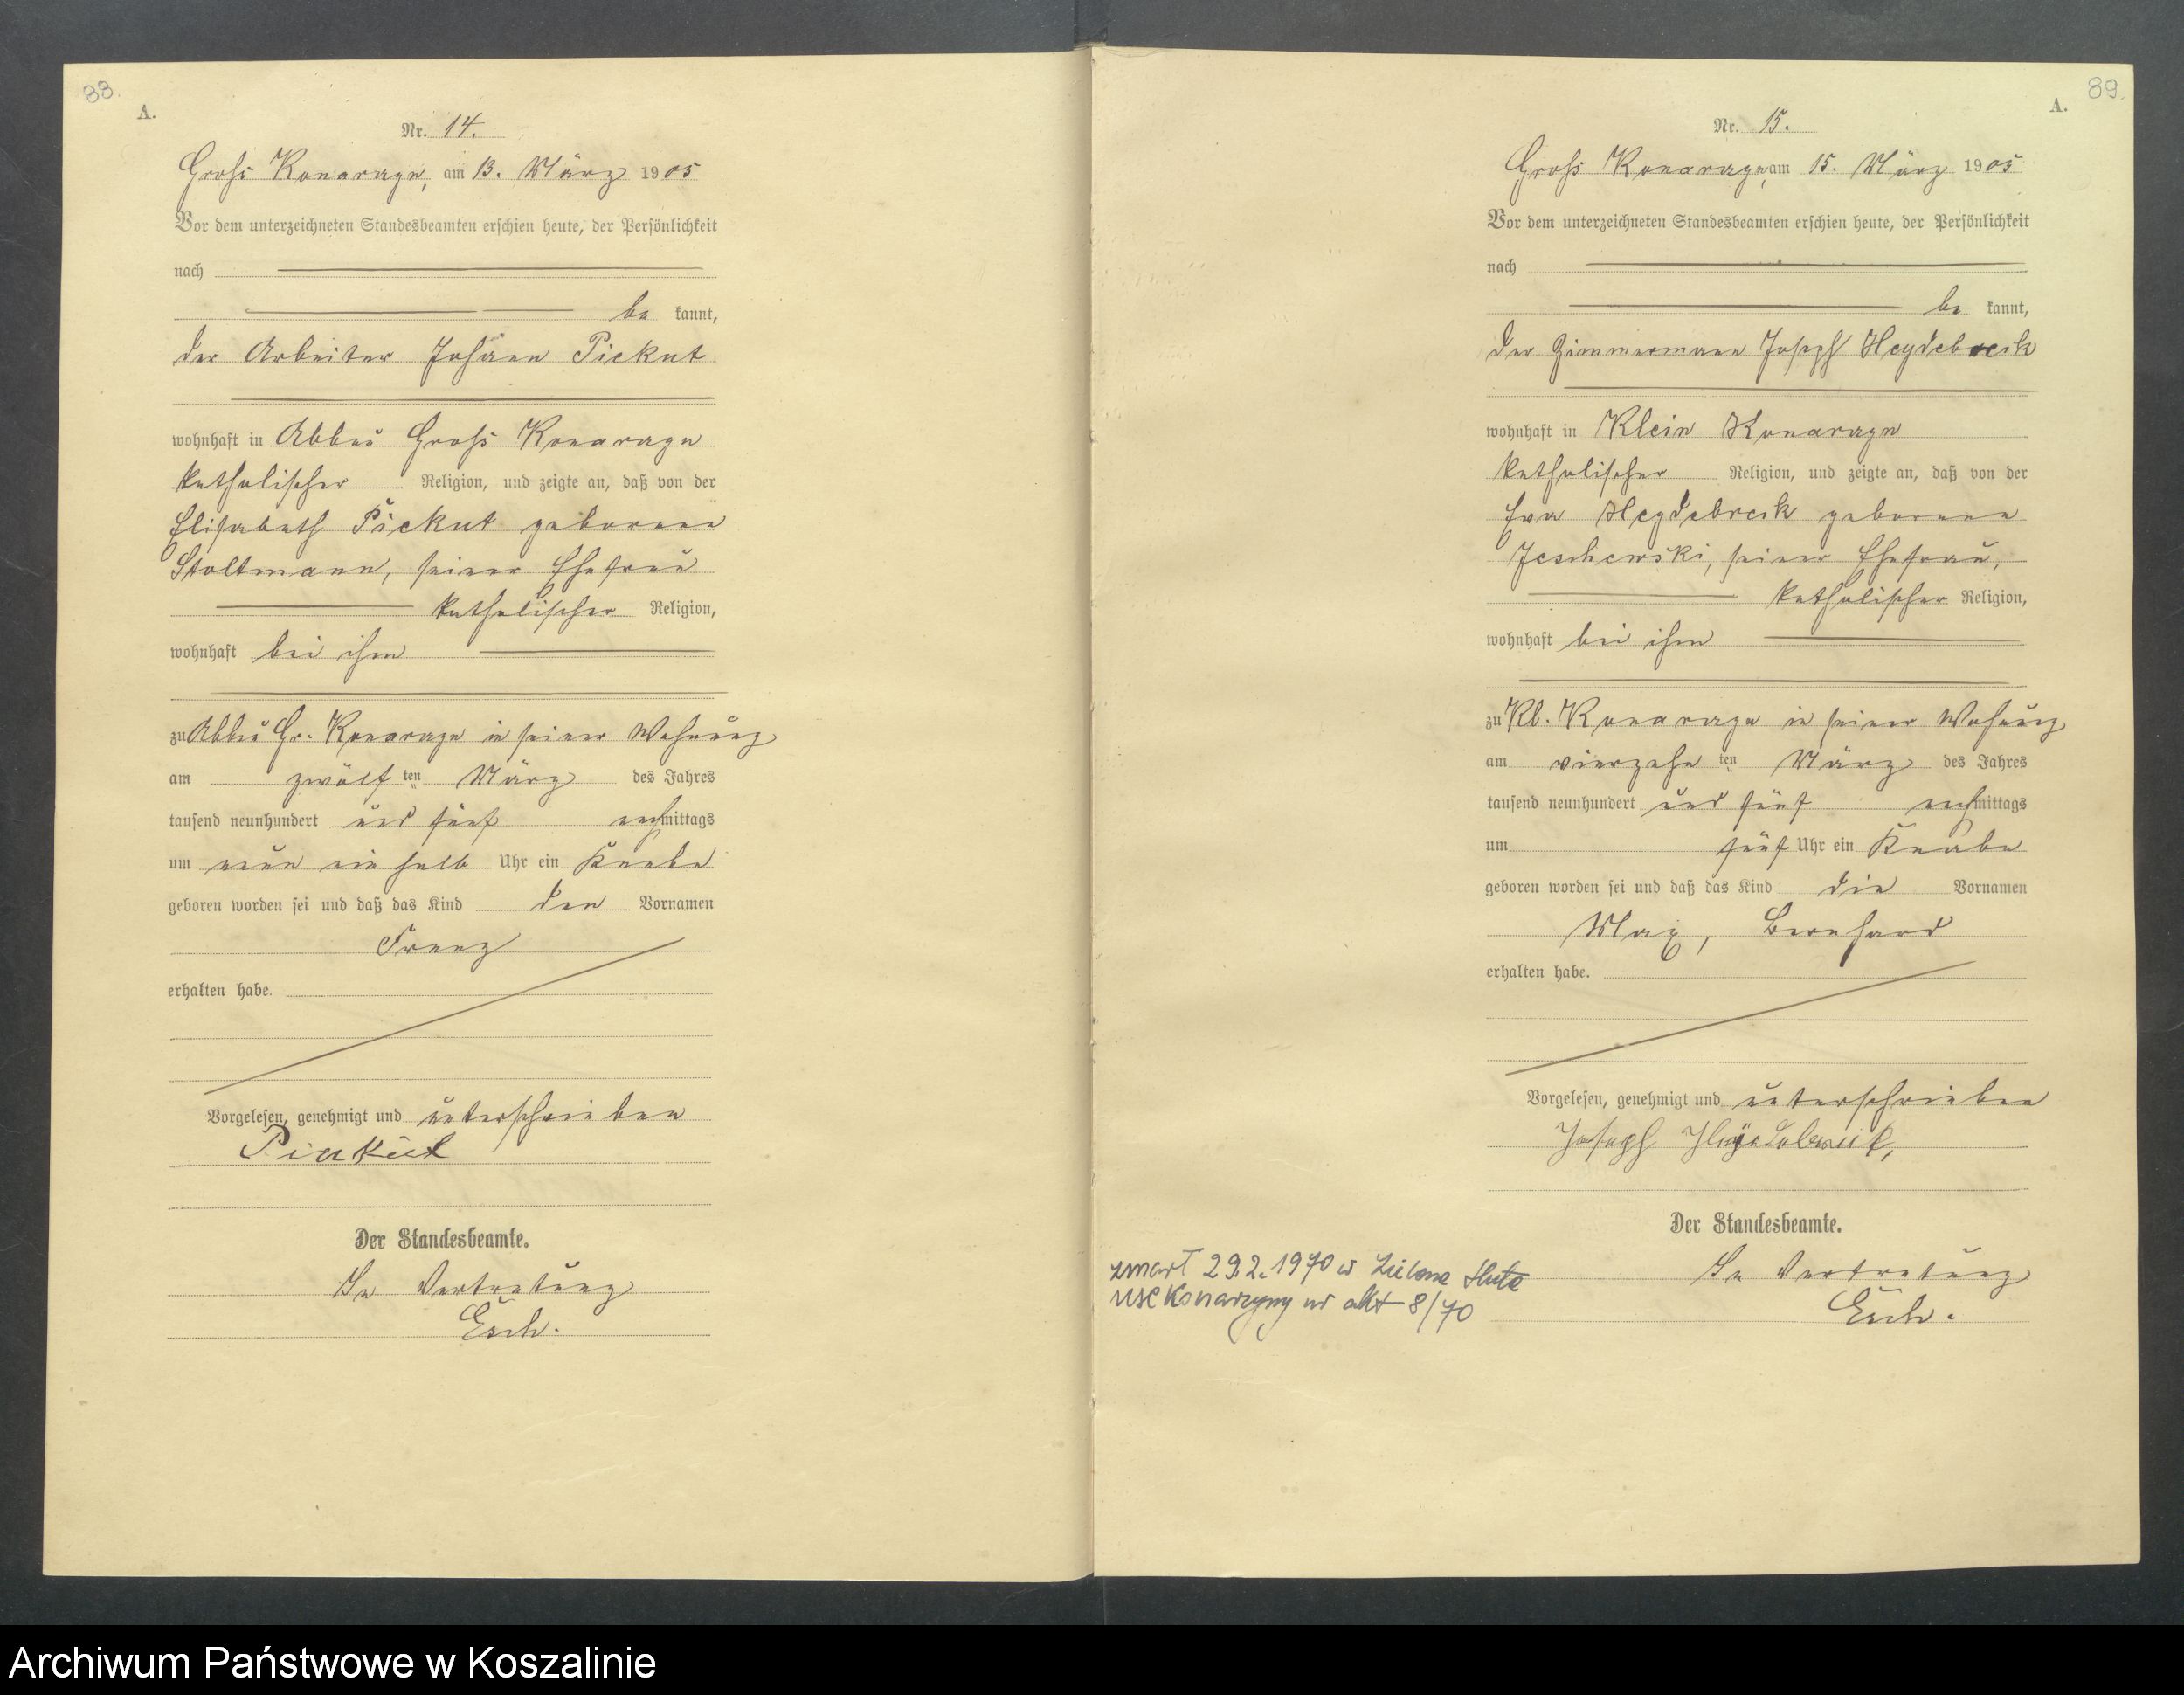 88.
A.
Nr. 14.
Gross Konarzyn, am 13. März 1905
Vor dem unterzeichneten Standesbeamten erschien heute, der Persönlichkeit
nach
be kannt,
der Arbeiter Johann Pickut
wohnhaft in Abbau Gross Konarzyn
katholischer Religion, und zeigte an, daß von der
Elisabeth Pickut geborene
Stoltmann, seiner Ehefrau
katholischer Religion,
wohnhaft bei ihm
zu Abbau Gr. Konarzyn in seiner Wohnung
am zwölf ten März des Jahres
tausend neunhundert und fünf nachmittags
um neun ein halb Uhr ein Knabe
geboren worden sei und daß das Kind den Vornamen
Franz
erhalten habe.
Vorgelesen, genehmigt und unterschrieben
Der Standesbeamte.
In Vertretung
Esch.
89.
A.
Nr. 15.
Gross Konarzyn, am 15. März 1905
Vor dem unterzeichneten Standesbeamten erschien heute, der Persönlichkeit
nach
be kannt,
der Zimmermann Joseph Heydebreck
wohnhaft in Klein Konarzyn
katholischer Religion, und zeigte an, daß von der
Eva Heydebreck geborene
Jeschewski, seiner Ehefrau,
katholischer Religion,
wohnhaft bei ihm
zu Kl. Konarzyn in seiner Wohnung
am vierzehn ten März des Jahres
tausend neunhundert und fünf nachmittags
um fünf Uhr ein Knabe
geboren worden sei und daß das Kind die Vornamen
Max, Bernhard
erhalten habe.
Vorgelesen, genehmigt und unterschrieben
Joseph Heydebreck,
Der Standesbeamte.
In Vertretung
Esch.
zmarł 29.2.1970 w Zielona Huta
USC Konarzyny nr akt 8/70
Archiwum Państwowe w Koszalinie